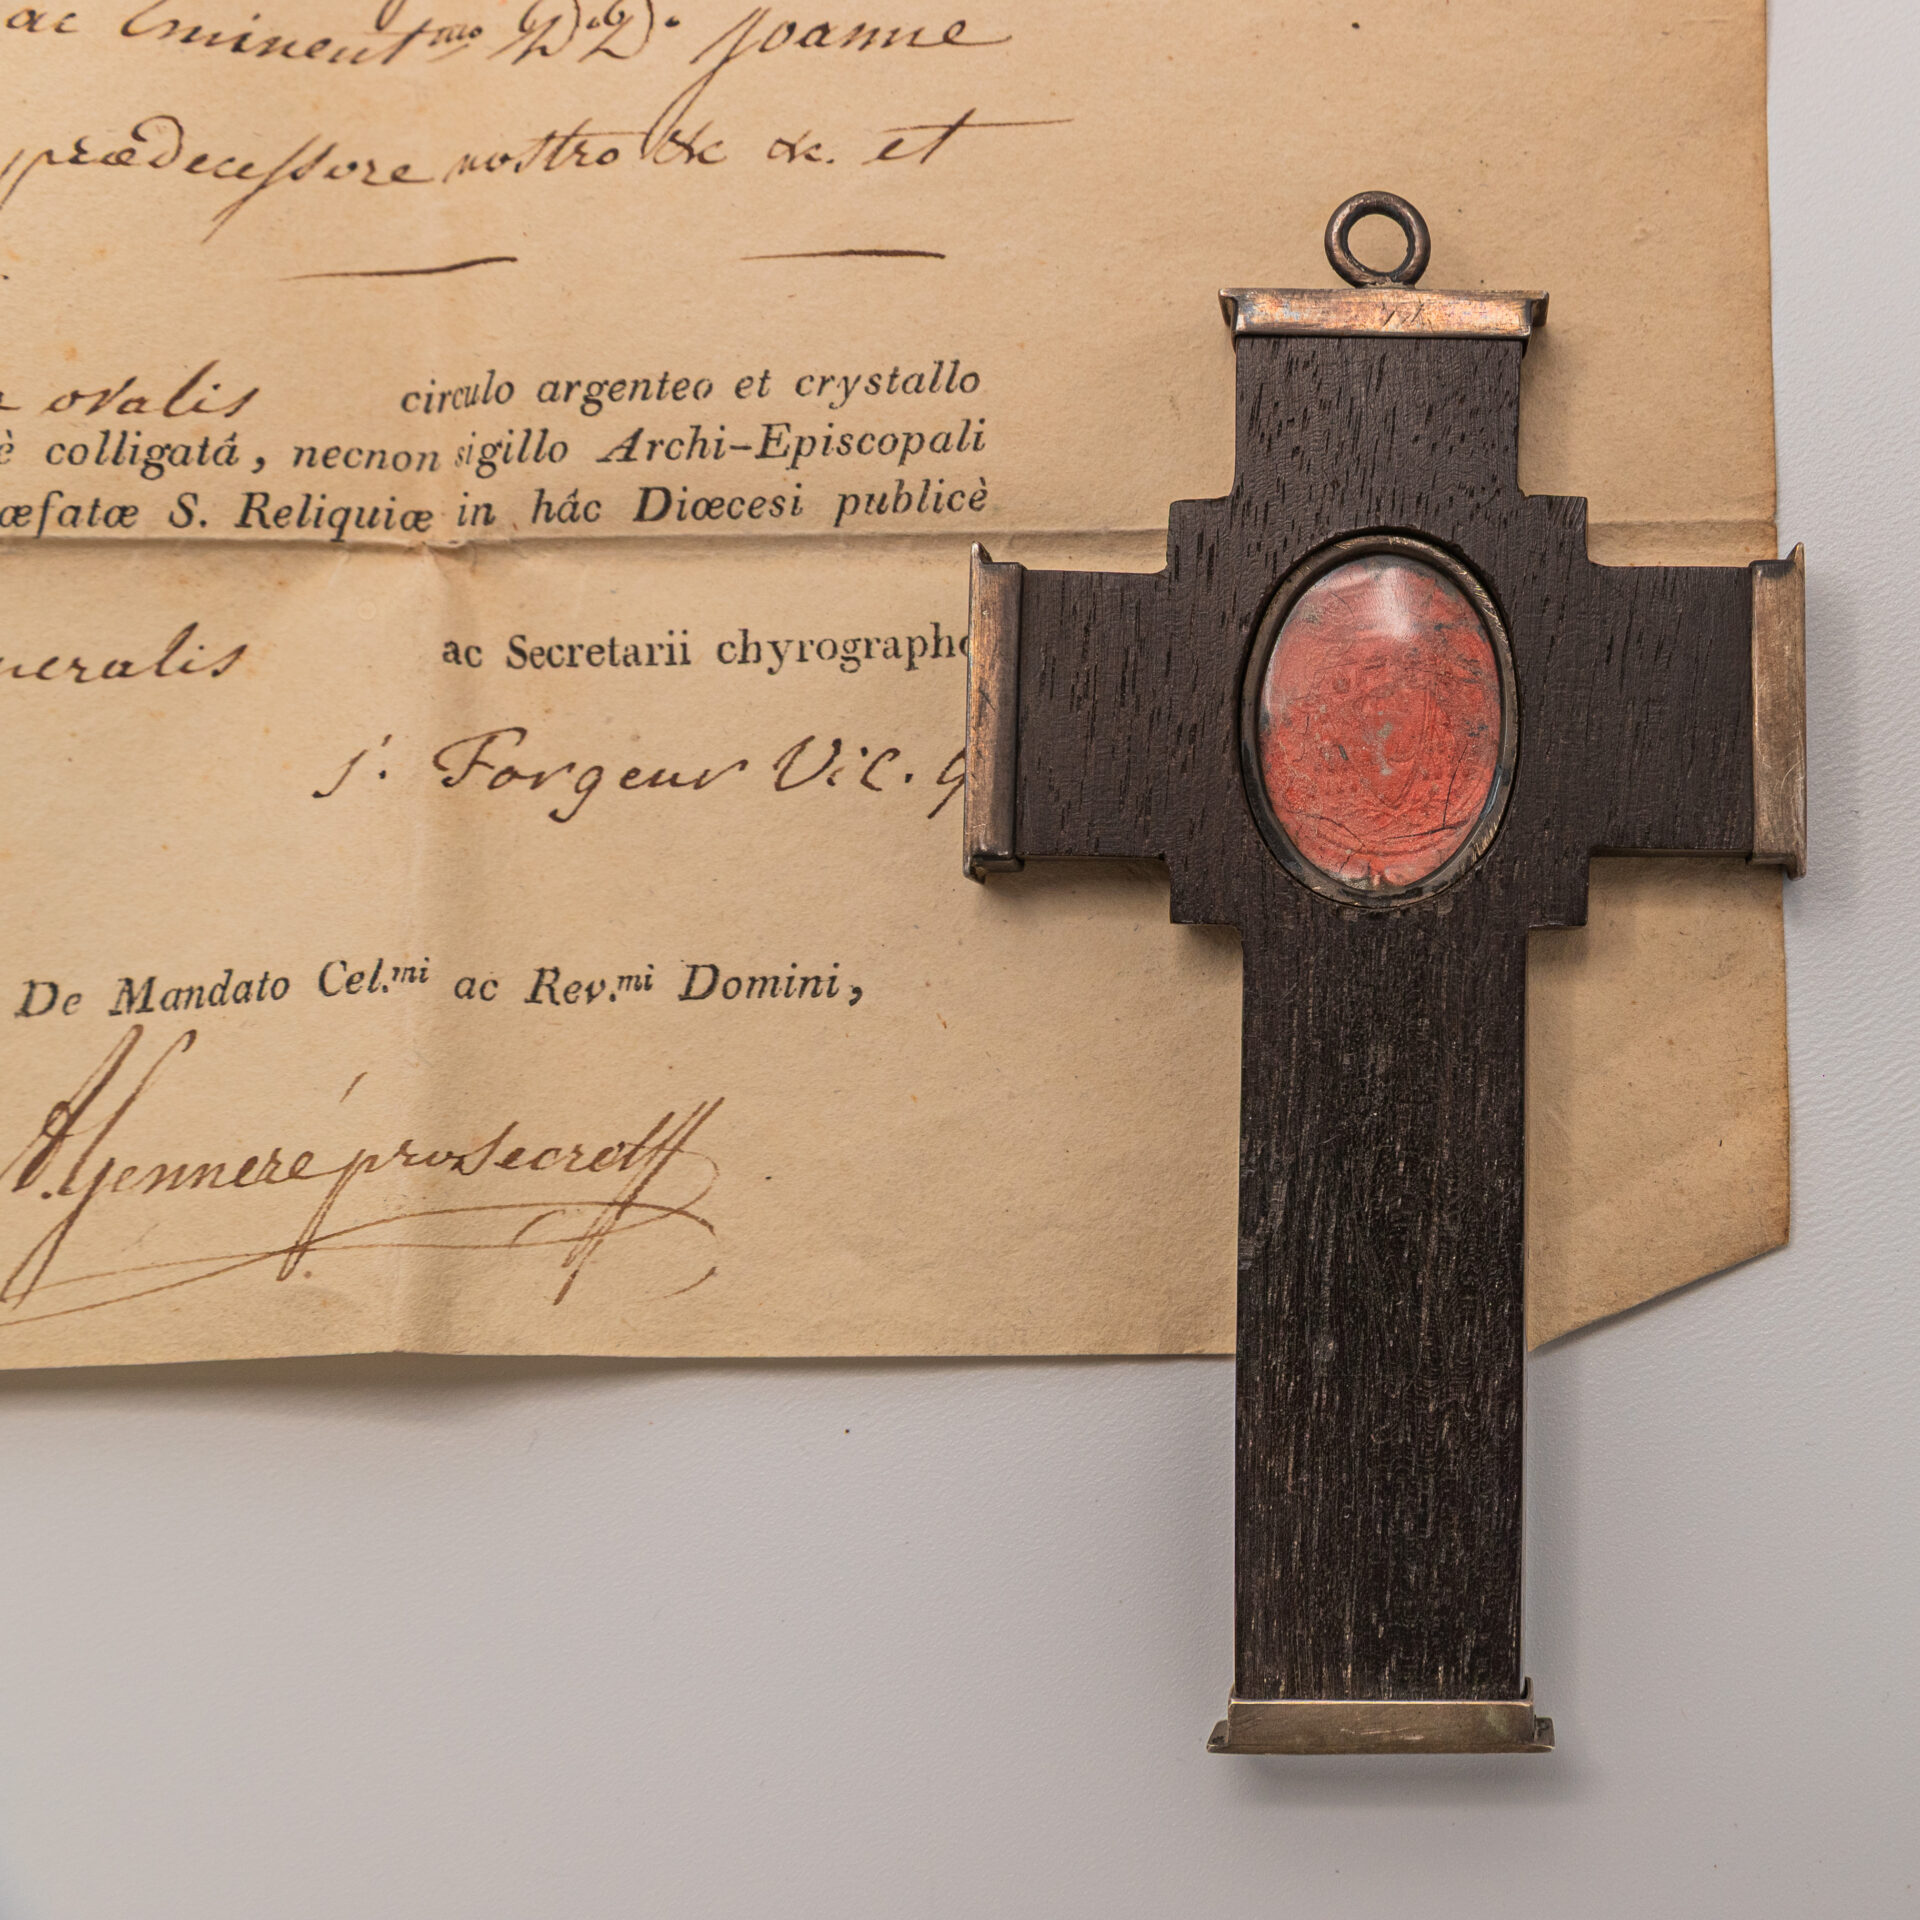 ac Eminentmo D.D. Joanne
prædecessore nostro &c &c. et
ovalis circulo argenteo et crystallo
è colligatâ, necnon sigillo Archi-Episcopali
æfatæ S. Reliquiæ in hâc Diœcesi publicè
neralis ac Secretarii chyrographo
J. Forgeur Vic. g
De Mandato Cel.mi ac Rev.mi Domini,
prosecret